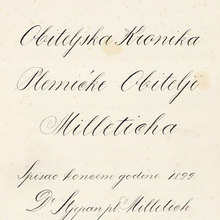 Obiteljska Kronika
Plemićke Obitelji
Milleticha
Spisao koncem godine 1899.
Dr Stjepan pl. Milletich